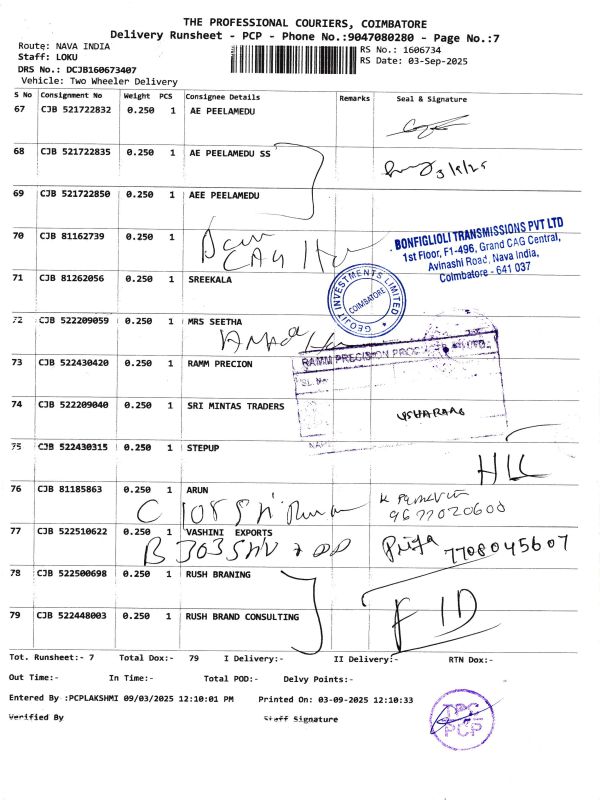 THE PROFESSIONAL COURIERS, COIMBATORE
Delivery Runsheet - PCP - Phone No.:9047080280 - Page No.:7
Route: NAVA INDIA
RS No.: 1606734
Staff: LOKU
RS Date: 03-Sep-2025
DRS No.: DCJB160673407
Vehicle: Two Wheeler Delivery
S No Consignment No Weight PCS Consignee Details Remarks Seal & Signature
67 CJB 521722832 0.250 1 AE PEELAMEDU
68 CJB 521722835 0.250 1 AE PEELAMEDU SS
69 CJB 521722850 0.250 1 AEE PEELAMEDU
70 CJB 81162739 0.250 1
CAG
BONFIGLIOLI TRANSMISSIONS PVT LTD
1st Floor, F1-496, Grand CAG Central,
Avinashi Road, Nava India,
Coimbatore - 641 037
71 CJB 81262056 0.250 1 SREEKALA
GEOJIT INVESTMENTS LIMITED
COIMBATORE
72 CJB 522209059 0.250 1 MRS SEETHA
73 CJB 522430420 0.250 1 RAMM PRECION
RAMM PRECISION
SL. No
74 CJB 522209040 0.250 1 SRI MINTAS TRADERS
75 CJB 522430315 0.250 1 STEPUP
76 CJB 81185863 0.250 1 ARUN
C 108
9677020600
77 CJB 522510622 0.250 1 VASHINI EXPORTS
B 303
Priya 7708045607
78 CJB 522500698 0.250 1 RUSH BRANING
79 CJB 522448003 0.250 1 RUSH BRAND CONSULTING
Tot. Runsheet:- 7 Total Dox:- 79 I Delivery:- II Delivery:- RTN Dox:-
Out Time:- In Time:- Total POD:- Delvy Points:-
Entered By :PCPLAKSHMI 09/03/2025 12:10:01 PM Printed On: 03-09-2025 12:10:33
Verified By Staff Signature
TPC
PCP